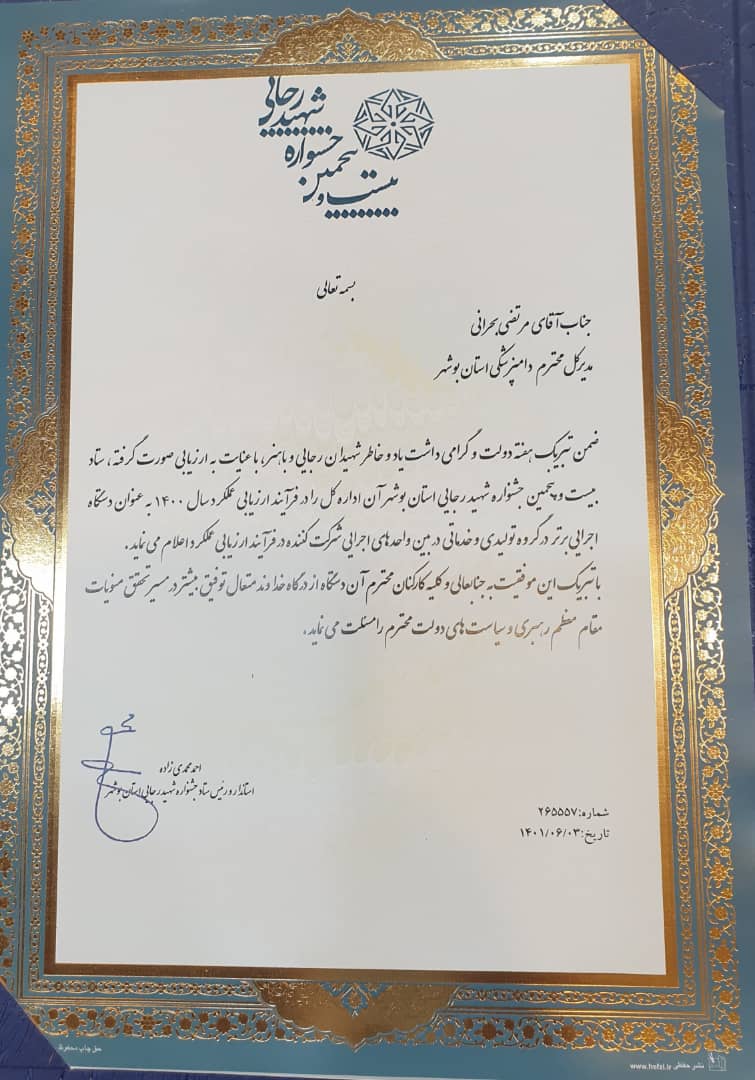 بیست و پنجمین
جشنواره
شهید رجایی
بسمه تعالی
جناب آقای مرتضی بحرانی
مدیرکل محترم دامپزشکی استان بوشهر
ضمن تبریک هفته دولت و گرامی داشت یاد و خاطر شهیدان رجایی و باهنر، با عنایت به ارزیابی صورت گرفته، ستاد
بیست و پنجمین جشنواره شهید رجایی استان بوشهر آن اداره کل را در فرآیند ارزیابی عملکرد سال ۱۴۰۰ به عنوان دستگاه
اجرایی برتر در گروه تولیدی و خدماتی در بین واحدهای اجرایی شرکت کننده در فرآیند ارزیابی عملکرد اعلام می نماید.
با تبریک این موفقیت به جنابعالی و کلیه کارکنان محترم آن دستگاه از درگاه خداوند متعال توفیق بیشتر در مسیر تحقق منویات
مقام معظم رهبری و سیاست های دولت محترم را مسئلت می نماید.
احمد محمدی زاده
استاندار و رئیس ستاد جشنواره شهید رجایی استان بوشهر
شماره: ۲۶۵۵۵۷
تاریخ: ۱۴۰۱/۰۶/۰۳
حق چاپ محفوظ
نشر حفظی www.hefzi.ir